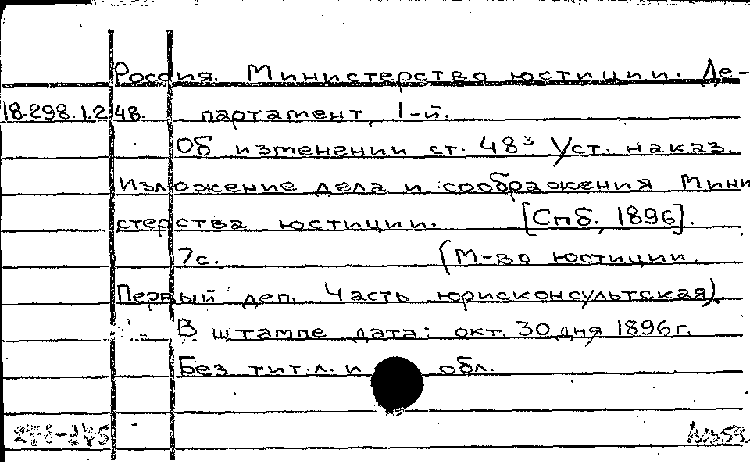 Россия. Министерство юстиции. Де-
18.298.1.248. партамент, 1-й.
Об изменении ст. 48³ Уст. наказ.
Изложение дела и соображения Мини
стерства юстиции. [Спб, 1896].
7с. (М-во юстиции.
Первый деп. Часть юрисконсультская)
В штампе дата: окт. 30 дня 1896г.
Без тит.л. и обл.